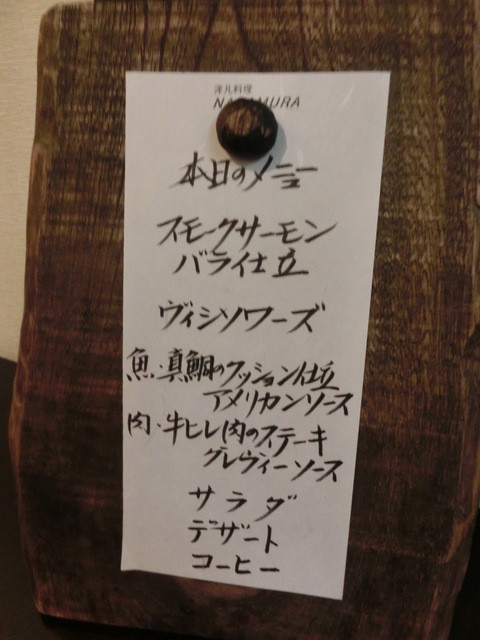 洋凡料理
本日のメニュー
スモークサーモン
バライ仕立
ヴィシソワーズ
魚・真鯛のクッション仕立
アメリカンソース
肉・牛ヒレ肉のステーキ
グレヴィーソース
サラダ
デザート
コーヒー